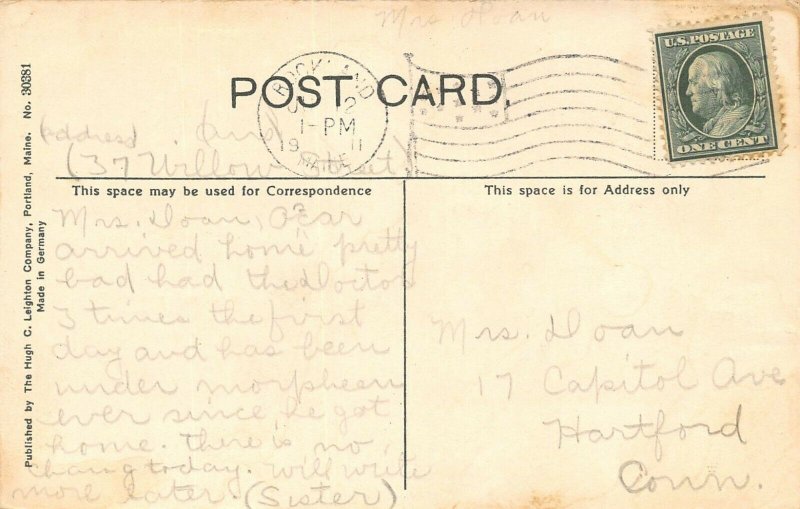 Mrs Doan
U.S. POSTAGE
ONE CENT
ROCKLAND
2
1-PM
19 11
MAINE
POST CARD.
(address)
(37 Willow Street)
This space may be used for Correspondence
This space is for Address only
Mrs. Doan,
arrived home pretty
bad had the doctor
3 times the first
day and has been
under morpheen
ever since he got
home. there is no
chang today. will write
more later. (Sister)
Mrs. Doan
17 Capitol Ave
Hartford
Conn.
Published by The Hugh C. Leighton Company, Portland, Maine. No. 30381
Made in Germany